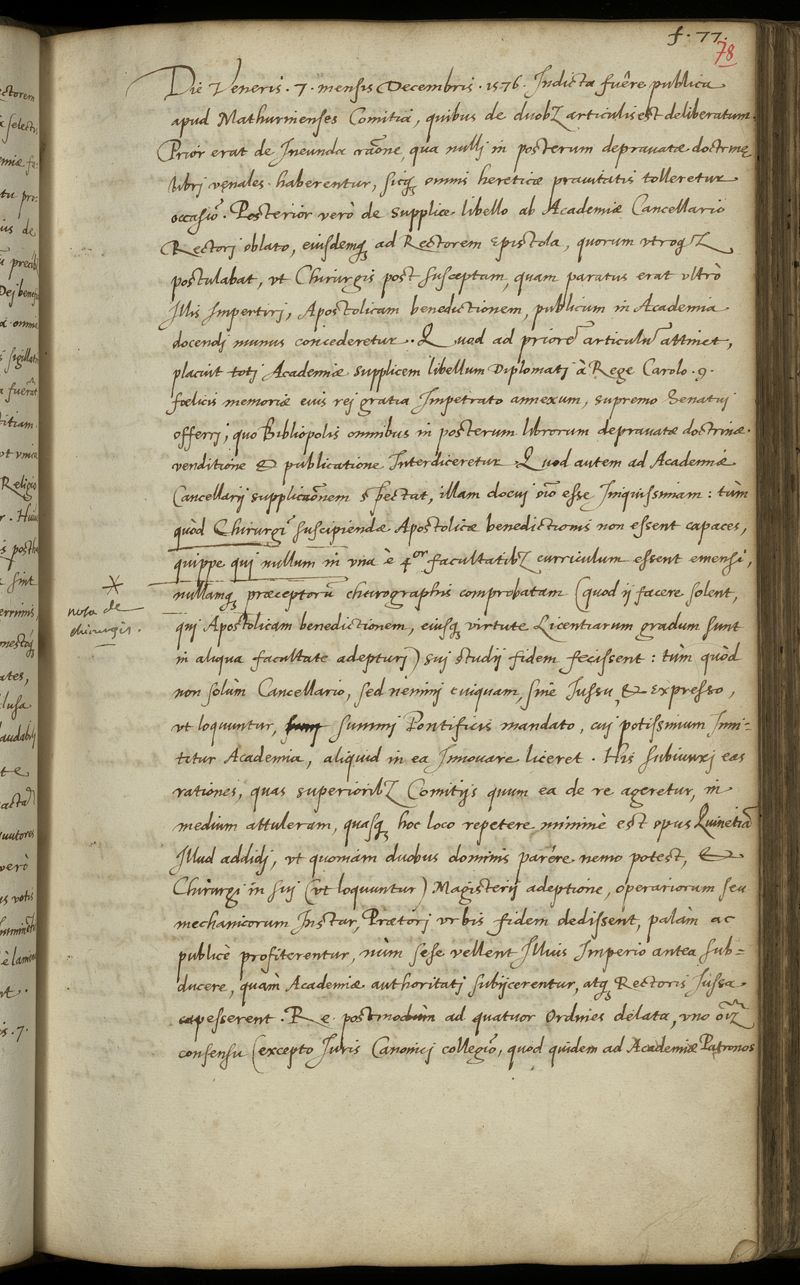 f. 77.
78
Die Veneris . 7 . mensis Decembris . 1576 . Indicta fuêre publica
apud Mathurinenses Comitia, quibus de duobꝫ articulis est deliberatum.
Prior erat de Ineunda raõne, qua nullj in posterum deprauatæ doctrinę
libri venales haberentur, sicqꝫ omnis hereticæ prauitatis tolleretur
occasiõ. Posterior verò de supplice libello ab Academiæ Cancellario
Rectorj oblato, eiusdemqꝫ ad Rectorem Epistola, quorum vtroqꝫ
postulabat, vt Chirurgis post susceptam, quam paratus erat vltrò
Illis Impertirj, Apostolicam benedictionem, publicum in Academia
docendj munus concederetur. Quod ad priorẽ articulũ attinet,
placuit totj Academiæ supplicem libellum Diplomatj à Rege Carolo . 9 .
fœlicis memoriæ eius rej gratia Impetrato annexum, supremo Senatuj
offerrj, quo Bibliopolis omnibus in posterum librorum deprauatæ doctrinæ
venditione & publicatione Interdiceretur. Quod autem ad Academiæ
Cancellarij supplicaõnem spectat, illam docuj oĩo esse Iniquissimam : tùm
quòd Chirurgi suscipiendæ Apostolicæ benedictionis non essent capaces,
quippe quj nullum in vna è 4or facultatibꝫ curriculum essent emensi,
nullamqꝫ præceptorũ chirographis comprobatam (quod ij facere solent,
quj Apostolicam benedictionem, eiusqꝫ virtute Licentiarum gradum sunt
in aliqua facultate adepturj) suj studij fidem fecissent : tùm quòd
non solùm Cancellario, sed neminj cuiquam, sine Iussu, & expresso,
vt loquuntur, summj Pontificis mandato, cuj potissimum Inni-
titur Academia, aliquid in ea Innouare liceret . His subiunxj eas
rationes, quas superioribꝫ Comitijs quum ea de re ageretur, in
medium attuleram, quasqꝫ hoc loco repetere minimè est opus Quinetiã
Illud addidj, vt quoniam duobus dominis parêre nemo potest, &
Chirurgi in suj (vt loquuntur) Magisterij adeptione, operariorum seu
mechanicorum Instar, Prætorj vrbis fidem dedissent, palàm ac
publicè profiterentur, nùm sese vellent Illius Imperio antea sub-
ducere, quàm Academiæ authoritatj subijcerentur, atqꝫ Rectoris Iussa
capesserent . Re postmodùm ad quatuor Ordines delata, vno oĩꝫ
consensu (excepto Iuris Canonicj collegio, quod quidem ad Academiæ Patronos
nota de
chirurgis.